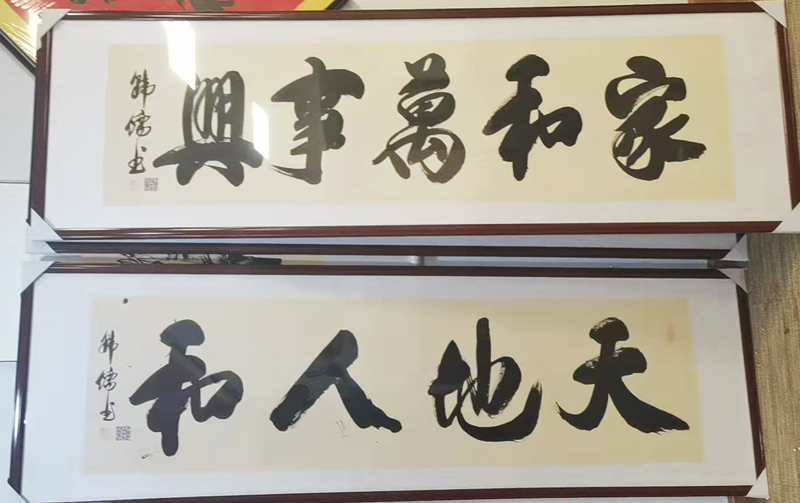 家和萬事興
韩儒书
天地人和
韩儒书